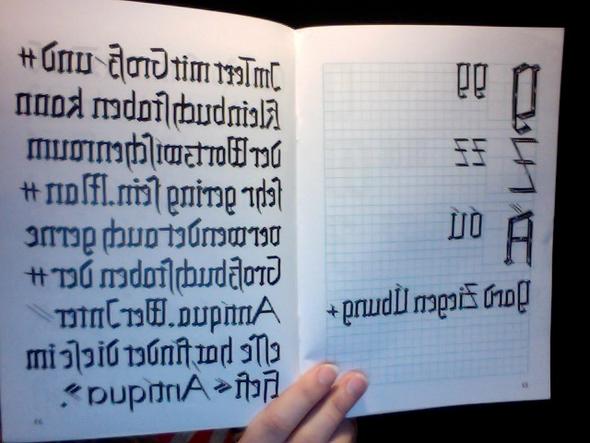 Im Text mit Groß- und
Kleinbuchstaben kann
der Wortzwischenraum
sehr gering sein. Man
verwendet auch gerne
Großbuchstaben der
Antiqua. Wer Inter
esse hat findet diese im
Heft »Antiqua«.
Z zz
Ziegen Übung